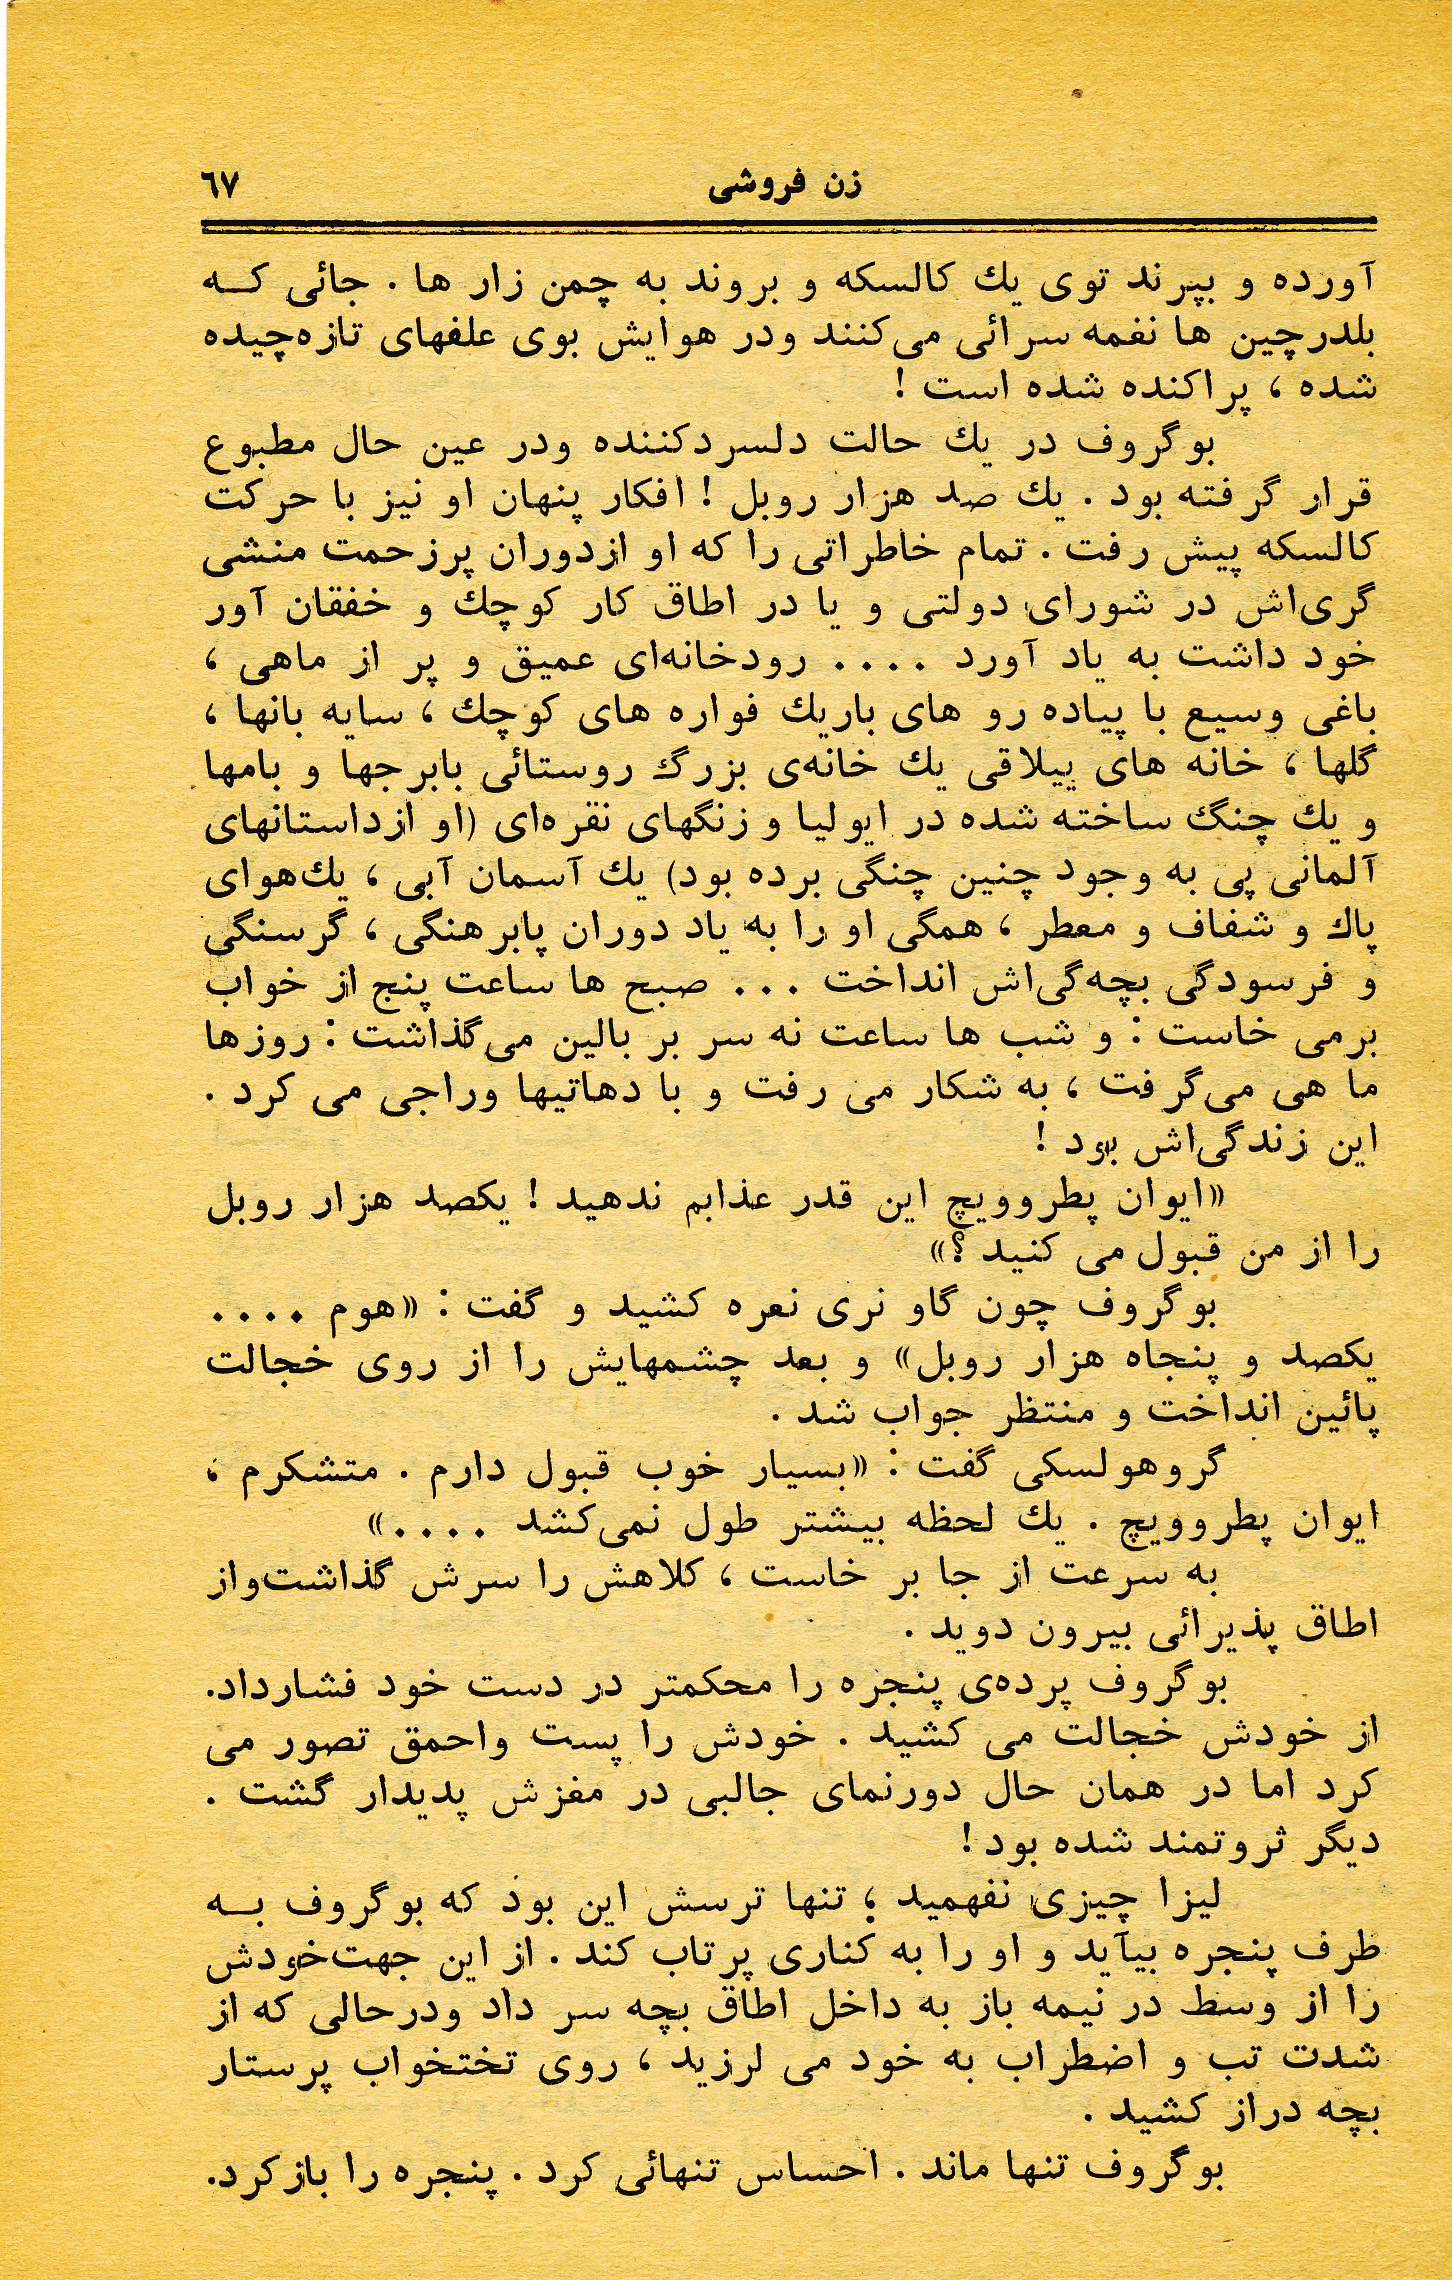 زن فروشی
٦٧
آورده و بپرند توی یك كالسكه و بروند به چمن زار ها . جائی كه
بلدرچین ها نغمه سرائی می‌كنند ودر هوایش بوی علفهای تازه‌چیده
شده ، پراكنده شده است !
بوگروف در یك حالت دلسردكننده ودر عین حال مطبوع
قرار گرفته بود . یك صد هزار روبل ! افكار پنهان او نیز با حركت
كالسكه پیش رفت . تمام خاطراتی را كه او ازدوران پرزحمت منشی
گری‌اش در شورای دولتی و یا در اطاق كار كوچك و خفقان آور
خود داشت به یاد آورد .... رودخانه‌ای عمیق و پر از ماهی ،
باغی وسیع با پیاده رو های باریك فواره های كوچك ، سایه بانها ،
گلها ، خانه های ییلاقی یك خانه‌ی بزرگ روستائی بابرجها و بامها
و یك چنگ ساخته شده در ایولیا و زنگهای نقره‌ای (او ازداستانهای
آلمانی پی به وجود چنین چنگی برده بود) یك آسمان آبی ، یك‌هوای
پاك و شفاف و معطر ، همگی او را به یاد دوران پابرهنگی ، گرسنگی
و فرسودگی بچه‌گی‌اش انداخت ... صبح ها ساعت پنج از خواب
برمی خاست : و شب ها ساعت نه سر بر بالین می‌گذاشت : روزها
ما هی می‌گرفت ، به شكار می رفت و با دهاتیها وراجی می كرد .
این زندگی‌اش بود !
«ایوان پطروویچ این قدر عذابم ندهید ! یكصد هزار روبل
را از من قبول می كنید ؟»
بوگروف چون گاو نری نعره كشید و گفت : «هوم ....
یكصد و پنجاه هزار روبل» و بعد چشمهایش را از روی خجالت
پائین انداخت و منتظر جواب شد .
گروهولسكی گفت : «بسیار خوب قبول دارم . متشكرم ،
ایوان پطروویچ . یك لحظه بیشتر طول نمی‌كشد ....»
به سرعت از جا بر خاست ، كلاهش را سرش گذاشت‌واز
اطاق پذیرائی بیرون دوید .
بوگروف پرده‌ی پنجره را محكمتر در دست خود فشارداد.
از خودش خجالت می كشید . خودش را پست واحمق تصور می
كرد اما در همان حال دورنمای جالبی در مغزش پدیدار گشت .
دیگر ثروتمند شده بود !
لیزا چیزی نفهمید ؛ تنها ترسش این بود كه بوگروف به
طرف پنجره بیآید و او را به كناری پرتاب كند . از این جهت‌خودش
را از وسط در نیمه باز به داخل اطاق بچه سر داد ودرحالی كه از
شدت تب و اضطراب به خود می لرزید ، روی تختخواب پرستار
بچه دراز كشید .
بوگروف تنها ماند . احساس تنهائی كرد . پنجره را بازكرد.